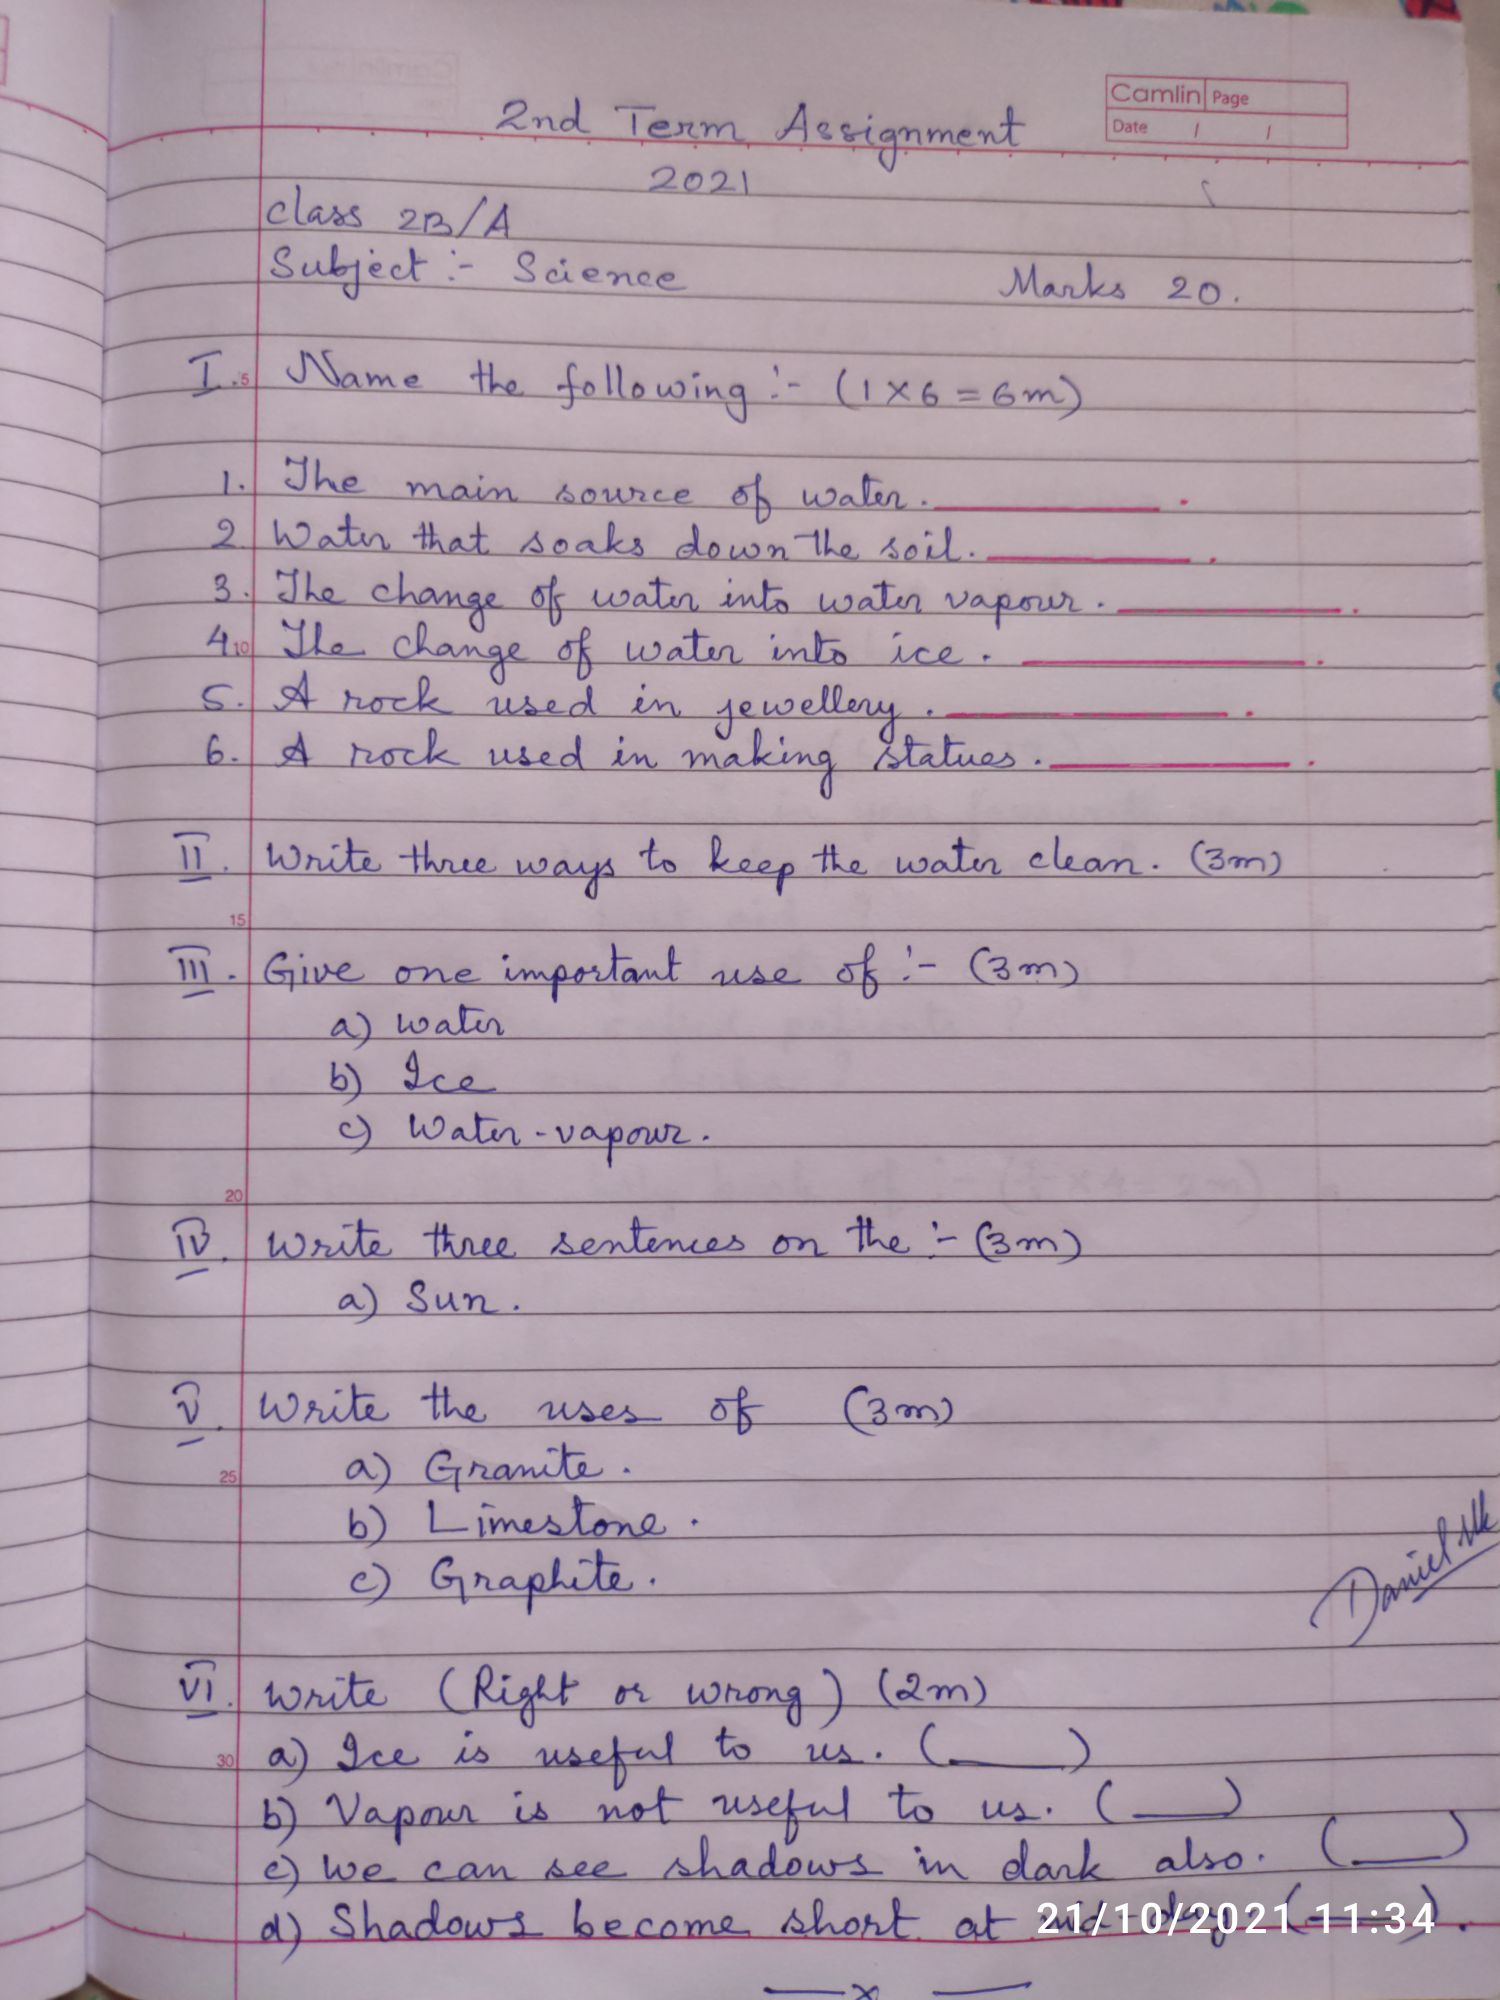 Camlin Page
Date / /
2nd Term Assignment
2021
class 2B/A
Subject :- Science Marks 20.
I. Name the following :- (1 X 6 = 6m)
1. The main source of water. ______ .
2. Water that soaks down the soil. ______ .
3. The change of water into water vapour. ______ .
4. The change of water into ice. ______ .
5. A rock used in jewellery. ______ .
6. A rock used in making statues. ______ .
II. Write three ways to keep the water clean. (3m)
III. Give one important use of :- (3m)
a) water
b) Ice
c) Water-vapour.
IV. Write three sentences on the :- (3m)
a) Sun.
V. Write the uses of (3m)
a) Granite.
b) Limestone.
c) Graphite.
Daniel
VI. Write (Right or wrong) (2m)
a) Ice is useful to us. (____)
b) Vapour is not useful to us. (____)
c) We can see shadows in dark also. (____)
d) Shadows become short at mid day. (____).
21/10/2021 11:34
— x —
5
10
15
20
25
30